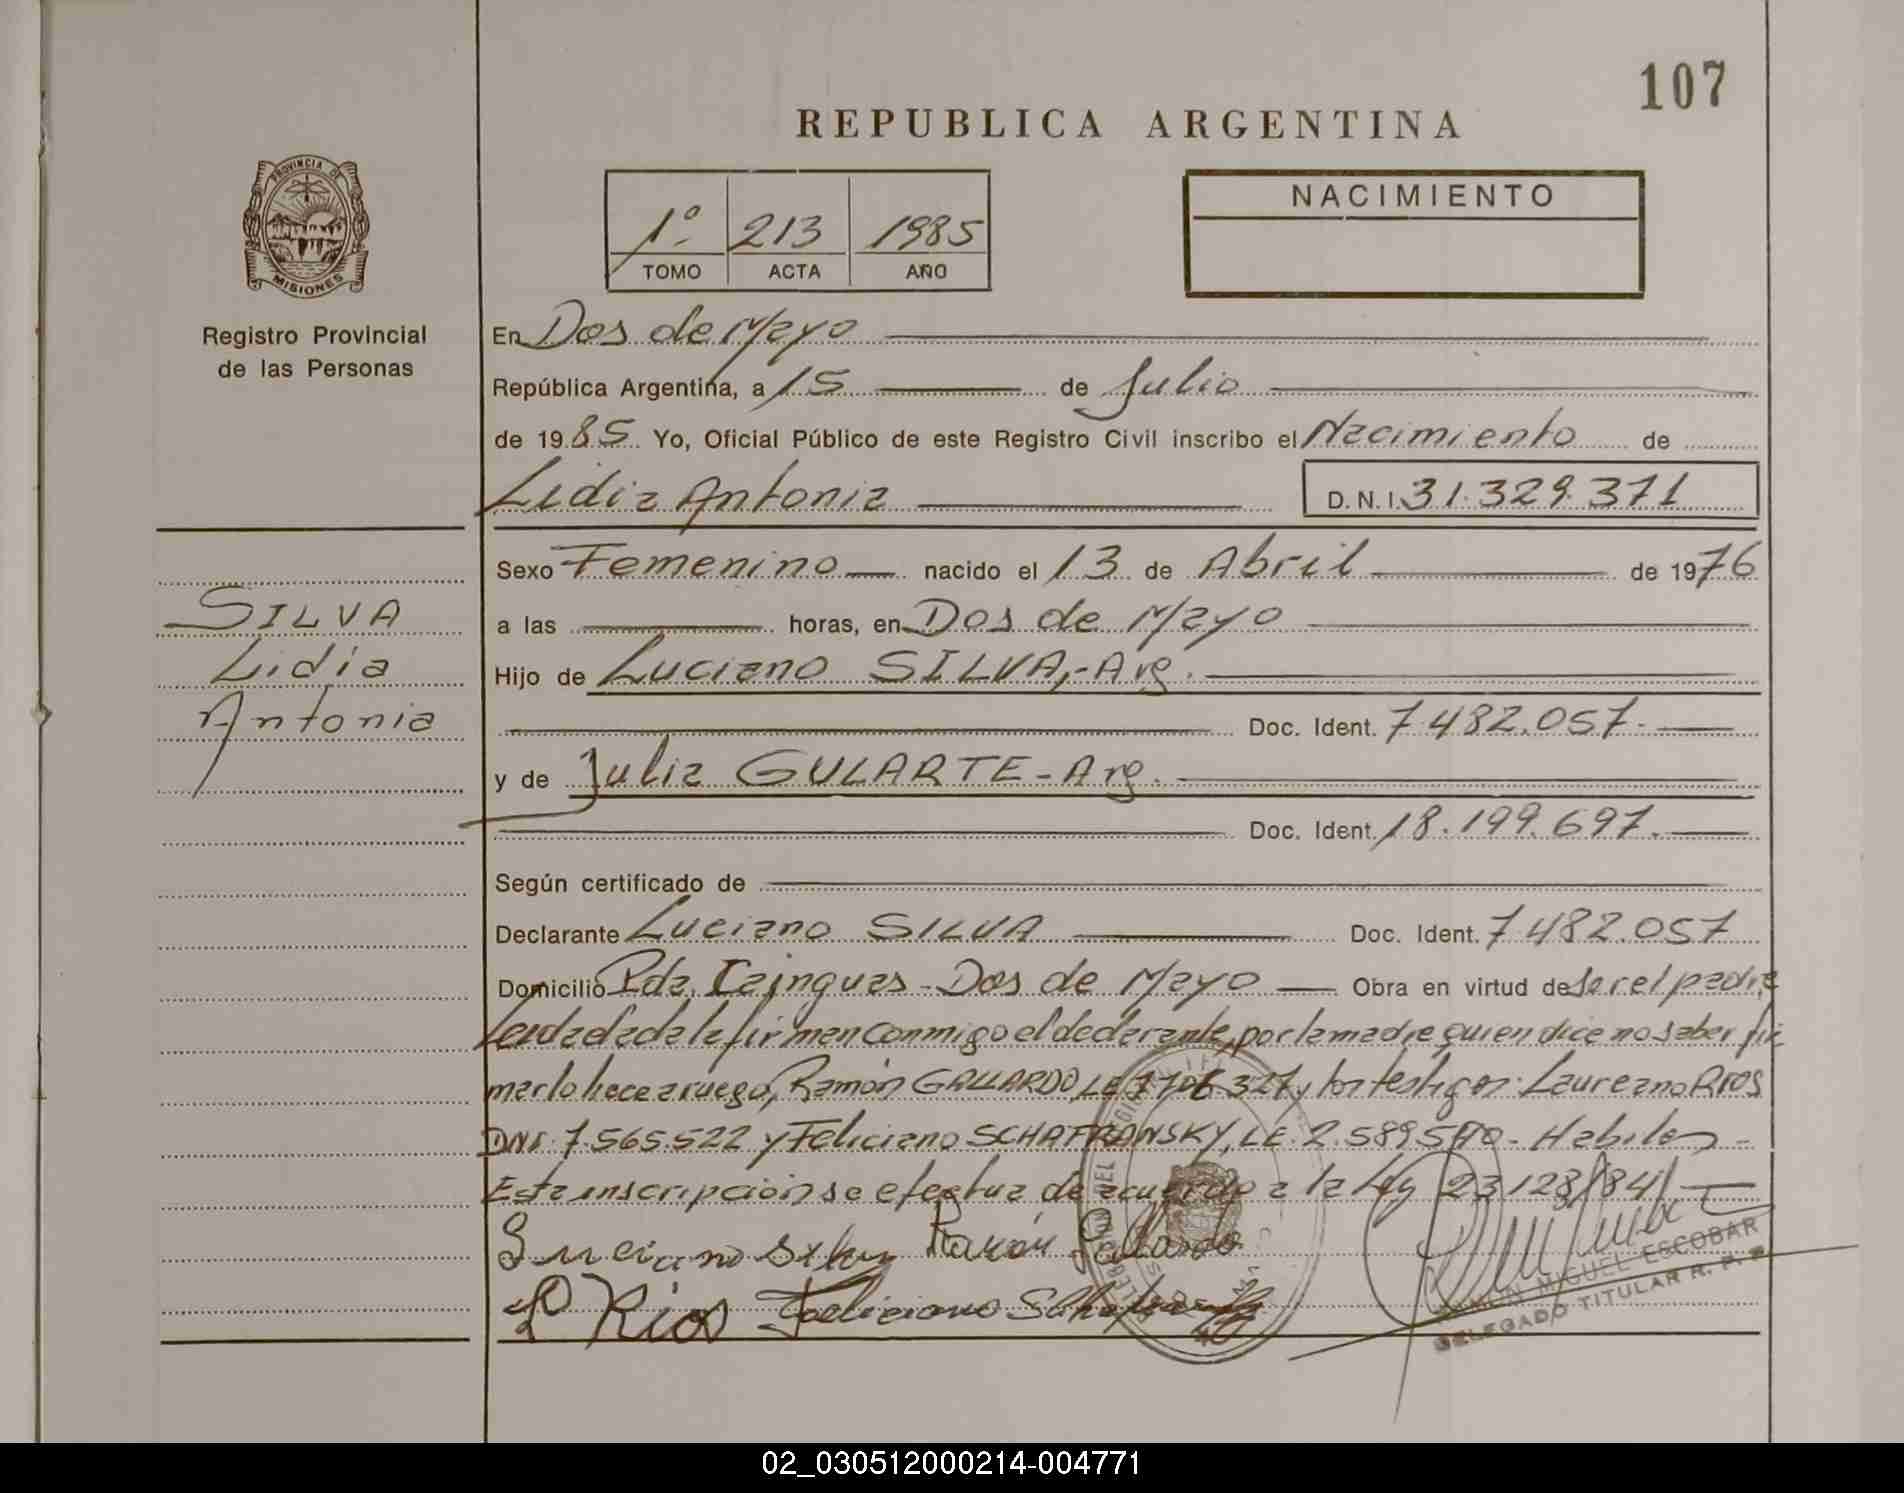 107
REPUBLICA ARGENTINA
PROVINCIA DE
MISIONES
Registro Provincial
de las Personas
1º 213 1985
TOMO ACTA AÑO
NACIMIENTO
En Dos de Mayo
República Argentina, a 15 de Julio
de 1985 Yo, Oficial Público de este Registro Civil inscribo el Nacimiento de
Lidia Antonia D.N.I. 31.329.371
SILVA
Lidia
Antonia
Sexo Femenino nacido el 13 de Abril de 1976
a las horas, en Dos de Mayo
Hijo de Luciano SILVA,-Arg.
Doc. Ident. 7.482.057.
y de Julia GULARTE-Arg.
Doc. Ident. 18.199.697.
Según certificado de
Declarante Luciano SILVA Doc. Ident. 7.482.057
Domicilio Pda. Cainguas - Dos de Mayo Obra en virtud de ser el padre
Leida el acta la firman conmigo el declarante, por la madre quien dice no saber fir
mar lo hace a ruego, Ramón GALLARDO, LE y los testigos: Laureano RIOS
DNI. 7.565.522 y Feliciano SCHAFRANSKY, LE. 2.589.570 - Habiles -
Esta inscripción se efectua de acuerdo a la Ley 23.128/84/
Luciano Silva Ramón Gallardo
L Rios Feliciano
RAMON MIGUEL ESCOBAR
DELEGADO TITULAR R. P. P.
02_030512000214-004771